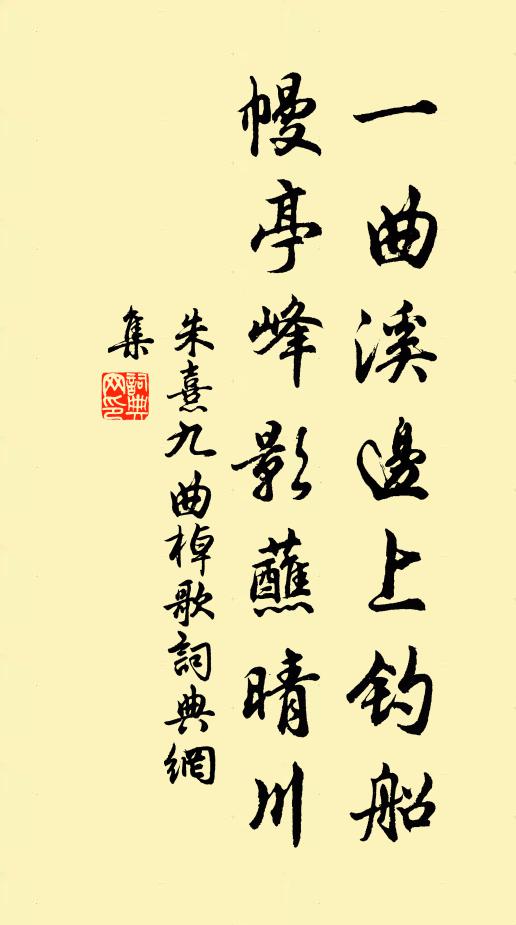 一曲溪邊上钓船
幔亭峰影蘸晴川
朱熹九曲棹歌詞典網
集
詞典
网印